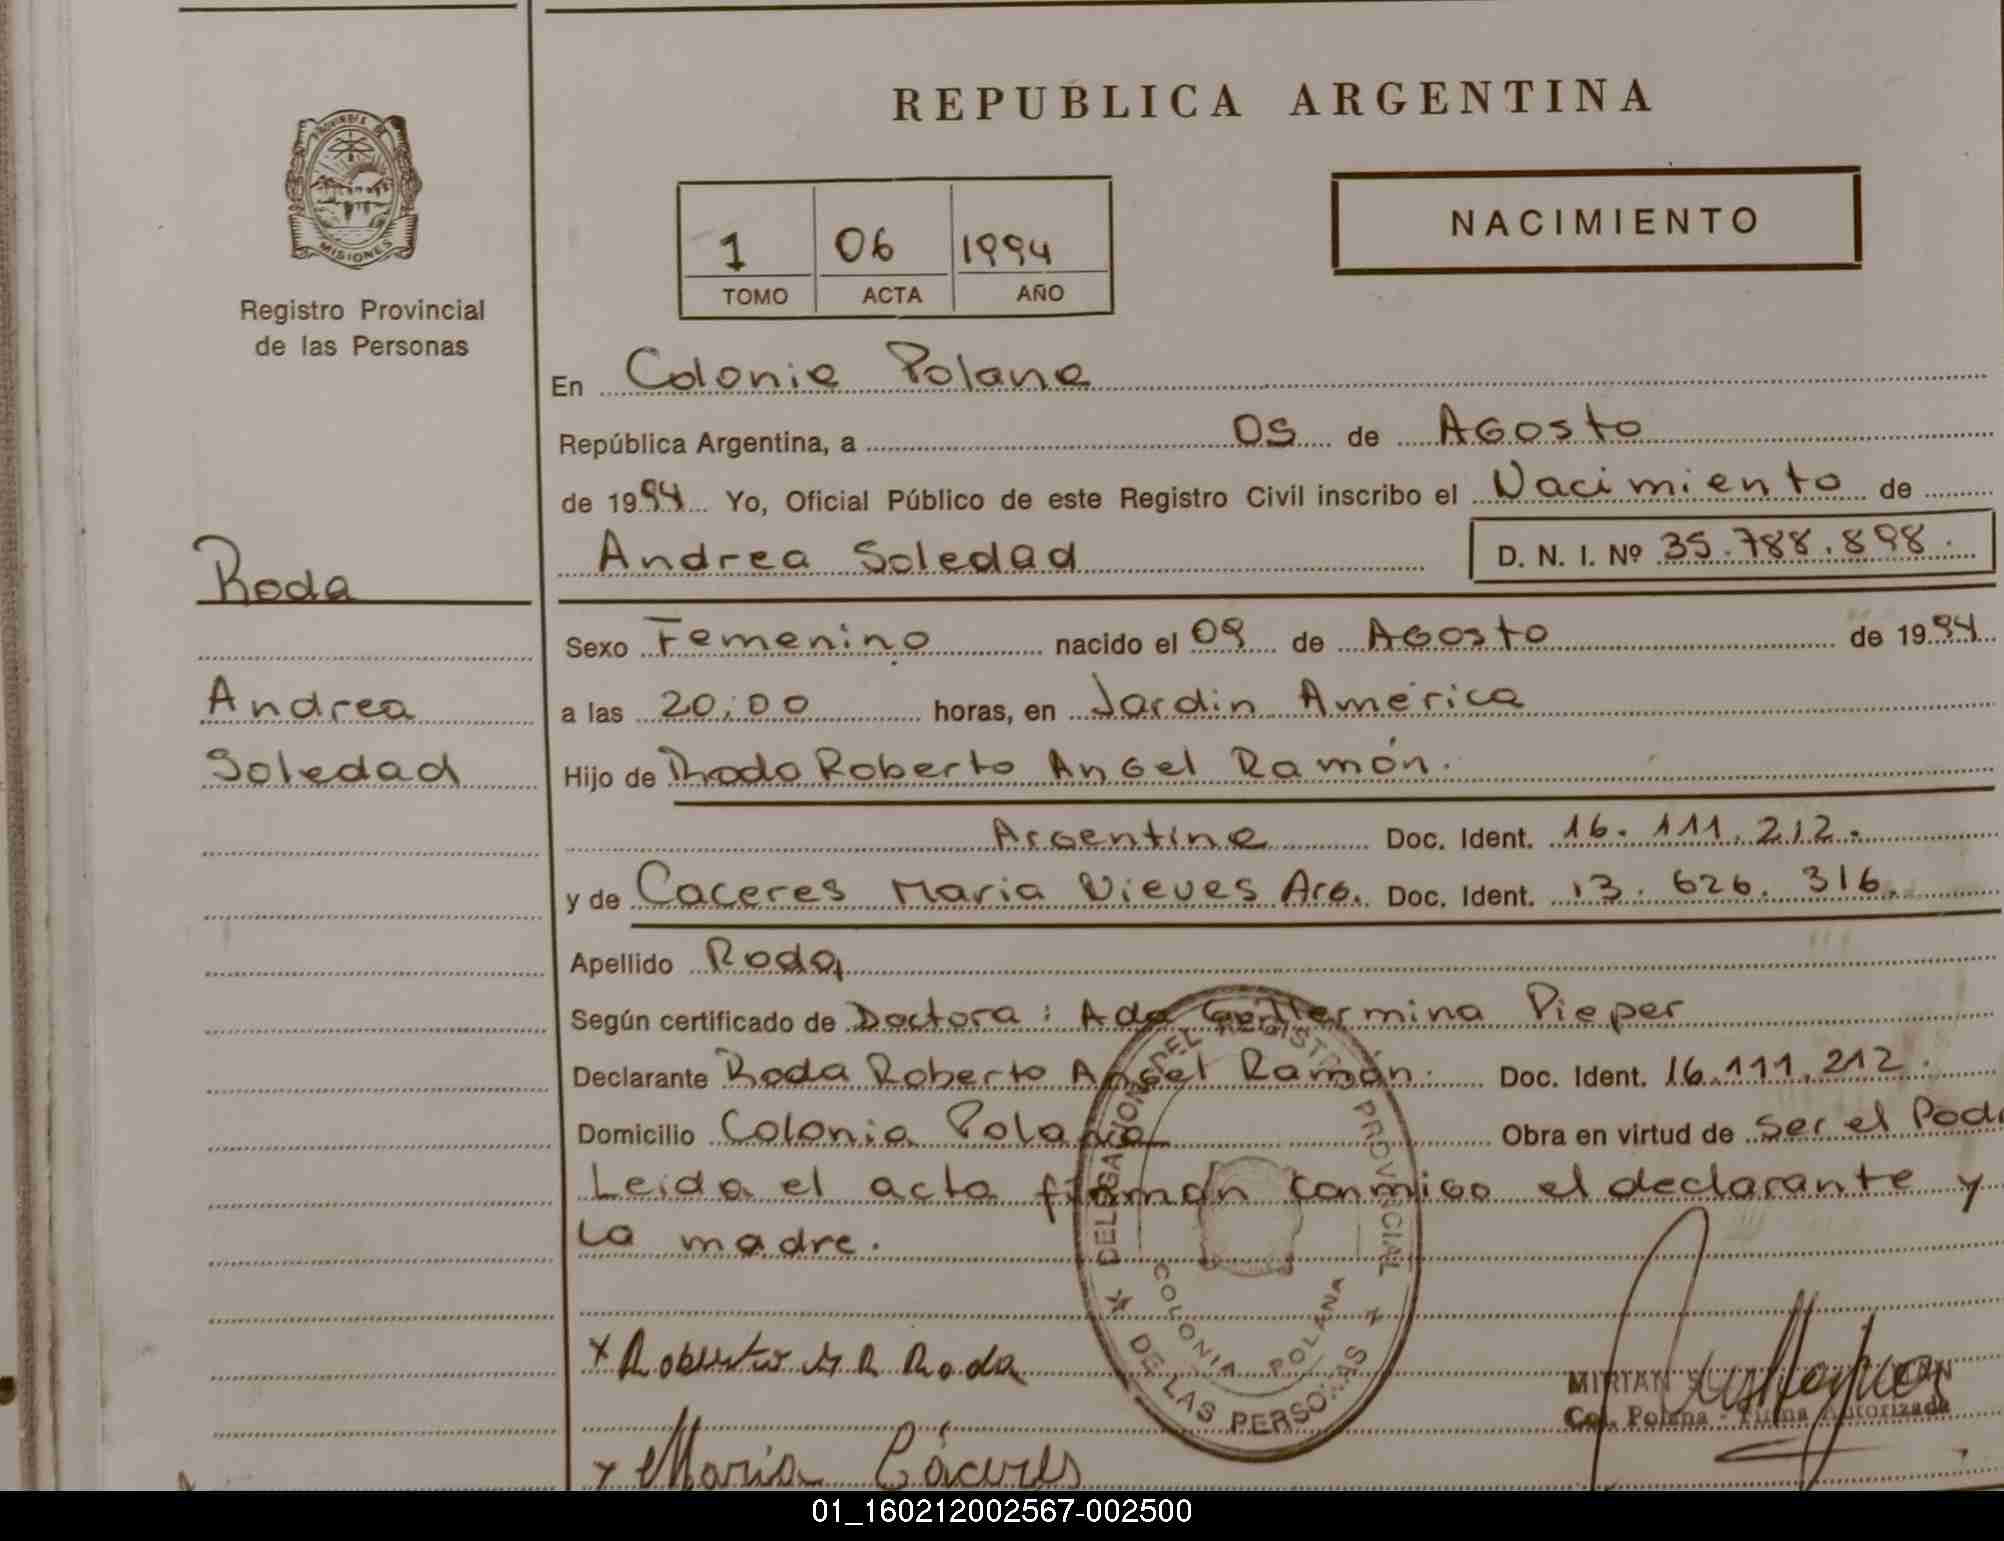 REPUBLICA ARGENTINA
PROVINCIA DE
MISIONES
Registro Provincial
de las Personas
NACIMIENTO
1 06 1994
TOMO ACTA AÑO
En Colonia Polana
República Argentina, a 05 de Agosto
de 1994 Yo, Oficial Público de este Registro Civil inscribo el Nacimiento de
Andrea Soledad D. N. I. Nº 35.788.898.
Roda
Andrea
Soledad
Sexo Femenino nacido el 09 de Agosto de 1994
a las 20:00 horas, en Jardin América
Hijo de Roda Roberto Angel Ramón.
Argentina Doc. Ident. 16.111.212.
y de Caceres Maria Nieves Arg. Doc. Ident. 13.626.316.
Apellido Roda
Según certificado de Doctora: Ada Guillermina Pieper
Declarante Roda Roberto Angel Ramón. Doc. Ident. 16.111.212.
Domicilio Colonia Polana Obra en virtud de ser el Pad
Leida el acta firman conmigo el declarante y
la madre.
DELEGACION DEL REGISTRO PROVINCIAL
DE LAS PERSONAS
COLONIA POLANA
x Roberto A R Roda
x Maria Cáceres
MIRIAN
Col. Polana - Firma Autorizada
01_160212002567-002500